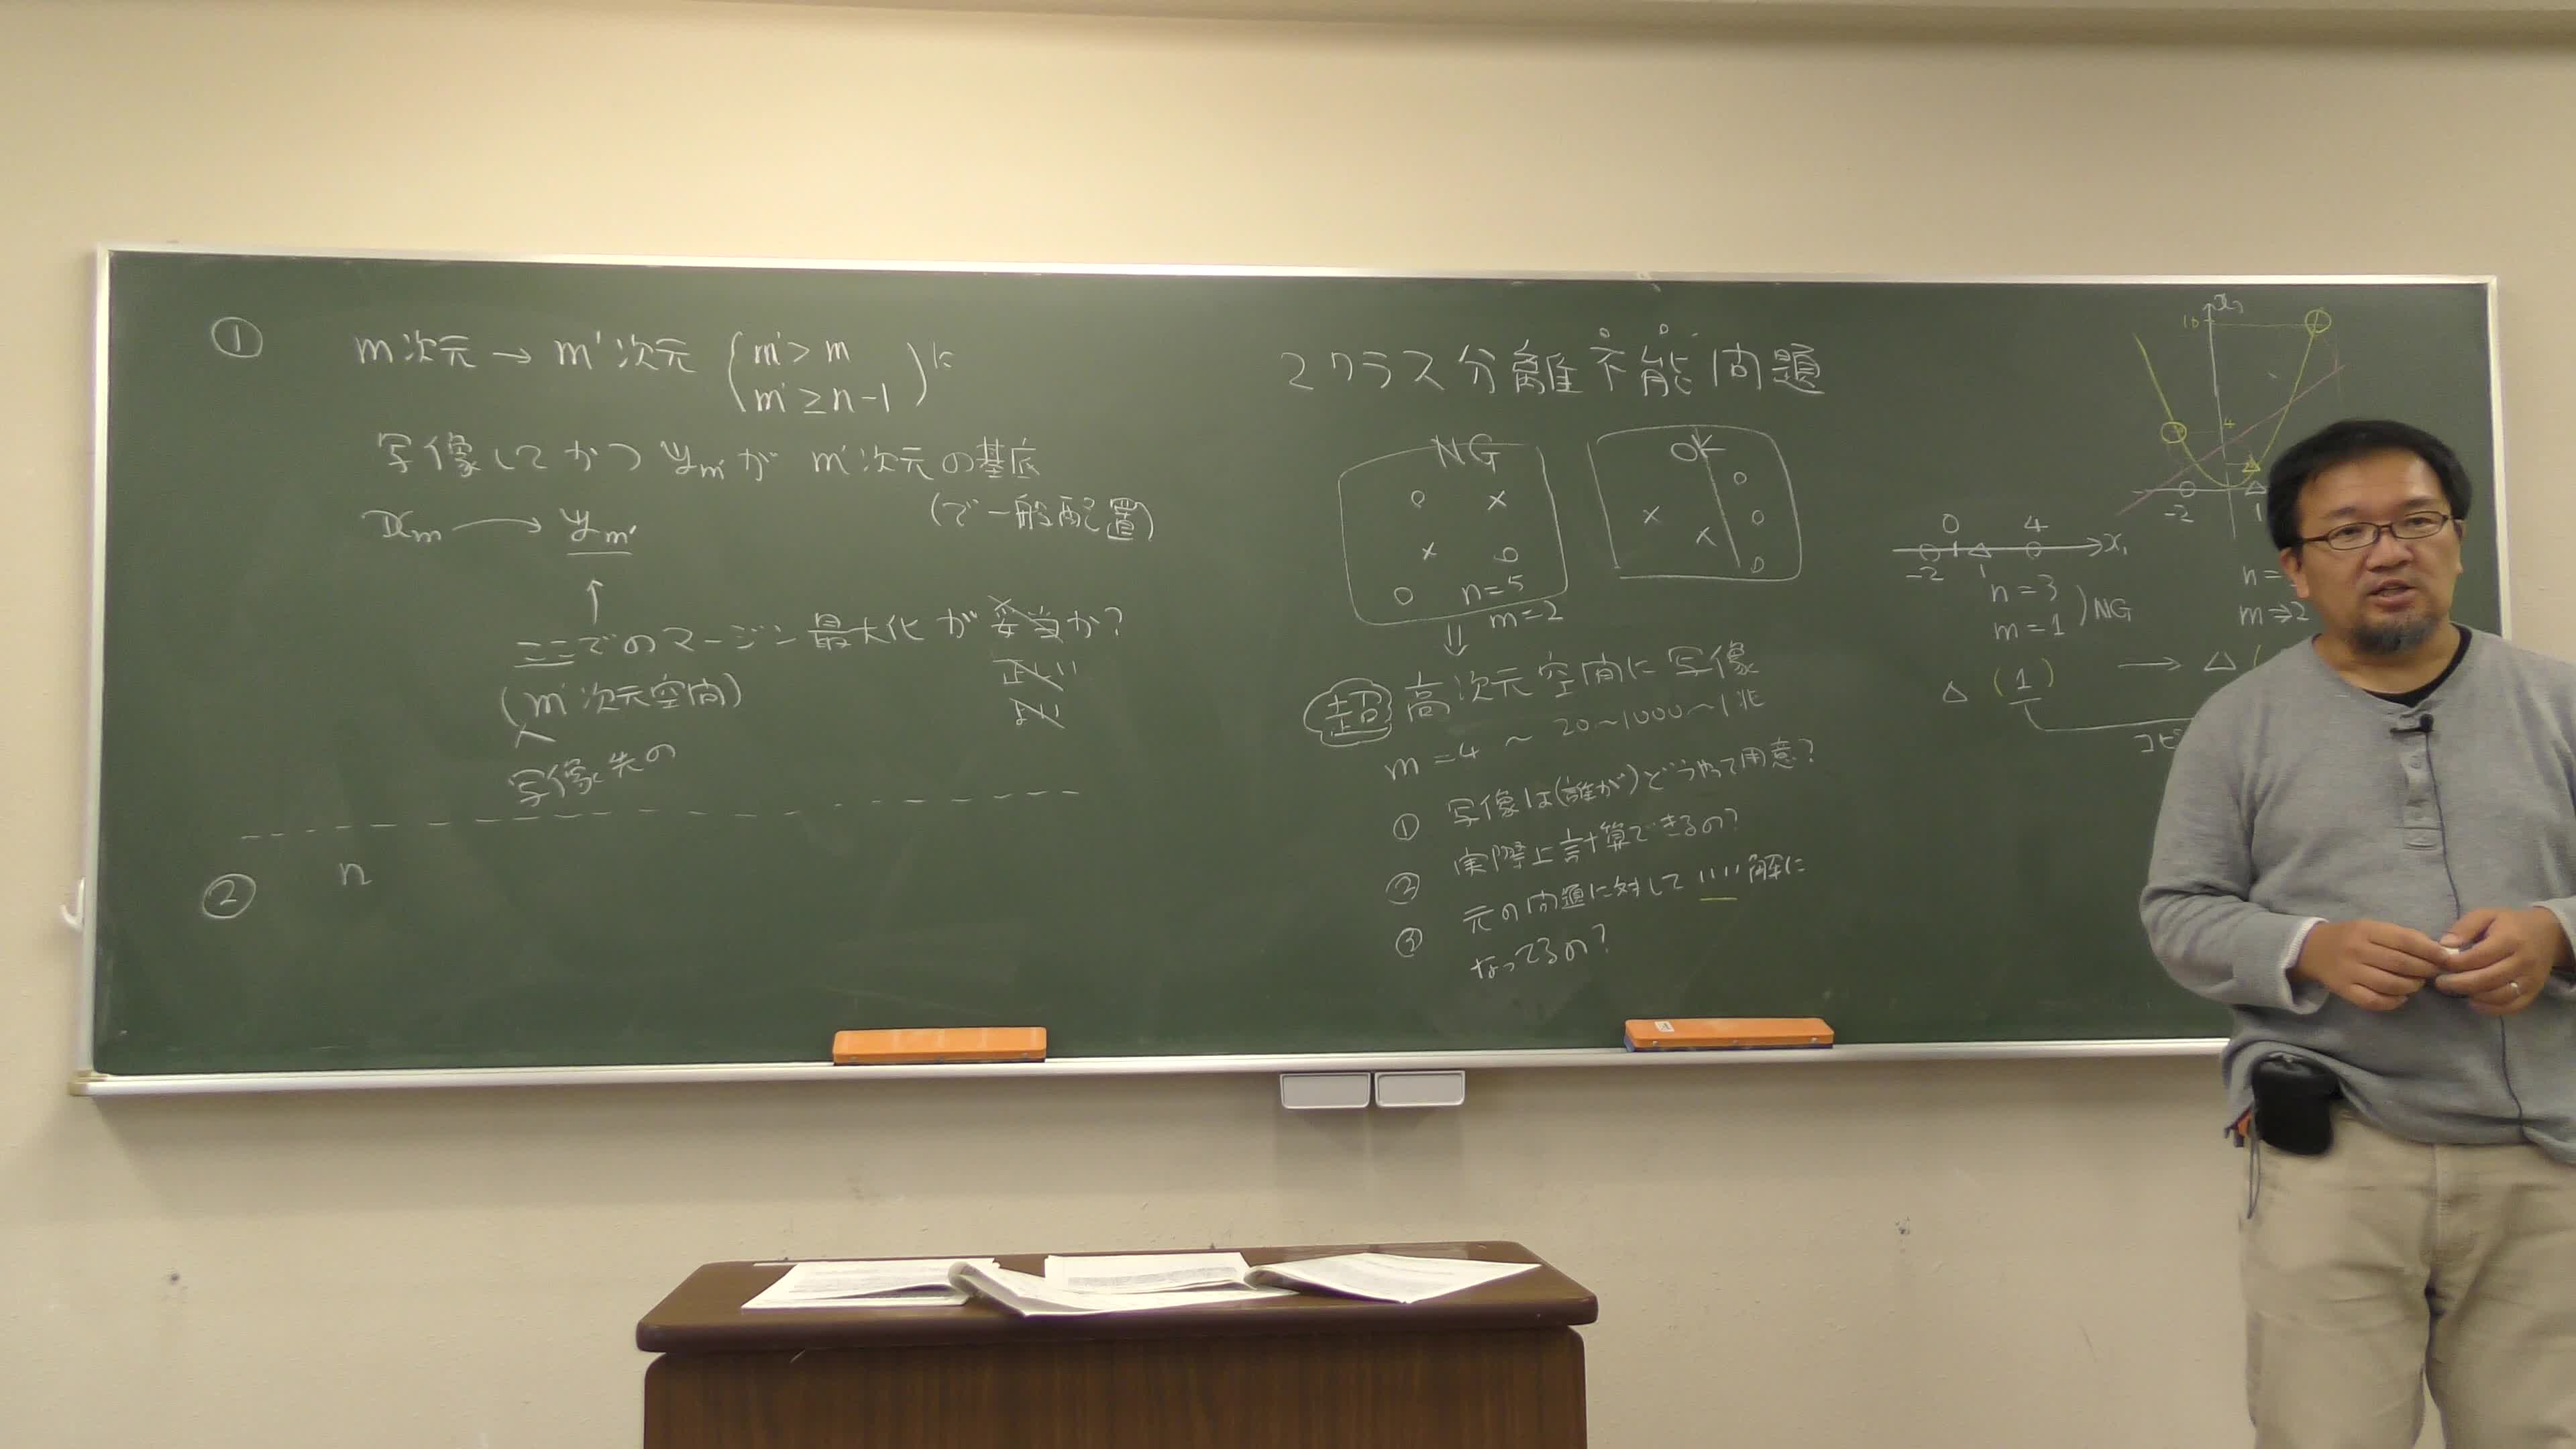 ①
m次元 → m'次元 (m'>m
m'≥n-1) に
写像してかつ ym'が m'次元の基底
(で一般配置)
xm → ym'
↑
ここでのマージン最大化が 妥当か?
正しい
よい
(m'次元空間)
写像先の
② n
2クラス分離不能問題
NG
n=5
m=2
OK
⇓
超高次元空間に写像
m=4 ~ 20~1000~1兆
① 写像は(誰が)どうやって用意?
② 実際上計算できるの?
③ 元の問題に対していい解に
なってるの?
0 4 x1
-2 1
n=3
m=1 )NG
△ (1) → △ (
コピ
10
4
-2 1
n=
m⇒2